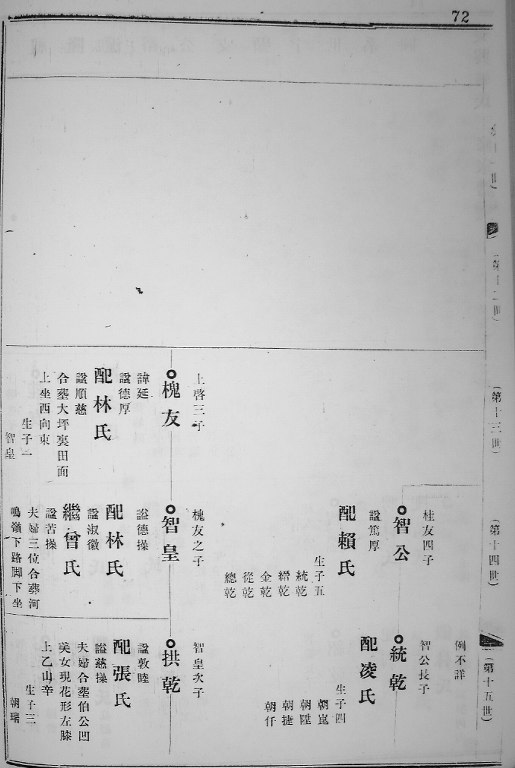 72
(第十三世)
上啓三子
槐友
諱延
諡德厚
配林氏
諡順慈
合葬大坪寨田面
上坐西向東
生子一
智皇
(第十四世)
桂友四子
智公
諡篤厚
配賴氏
生子五
統乾
縉乾
金乾
從乾
總乾
槐友之子
智皇
諡德操
配林氏
諡淑徽
繼曾氏
諡苦操
夫婦三位合葬河
鳴嶺下路脚下坐
(第十五世)
例不詳
智公長子
統乾
配凌氏
生子四
朝崑
朝陞
朝捷
朝仟
智皇次子
拱乾
諡敦睦
配張氏
諡慈操
夫婦合葬伯公凹
美女現花形左膝
上乙山辛
生子三
朝瑞